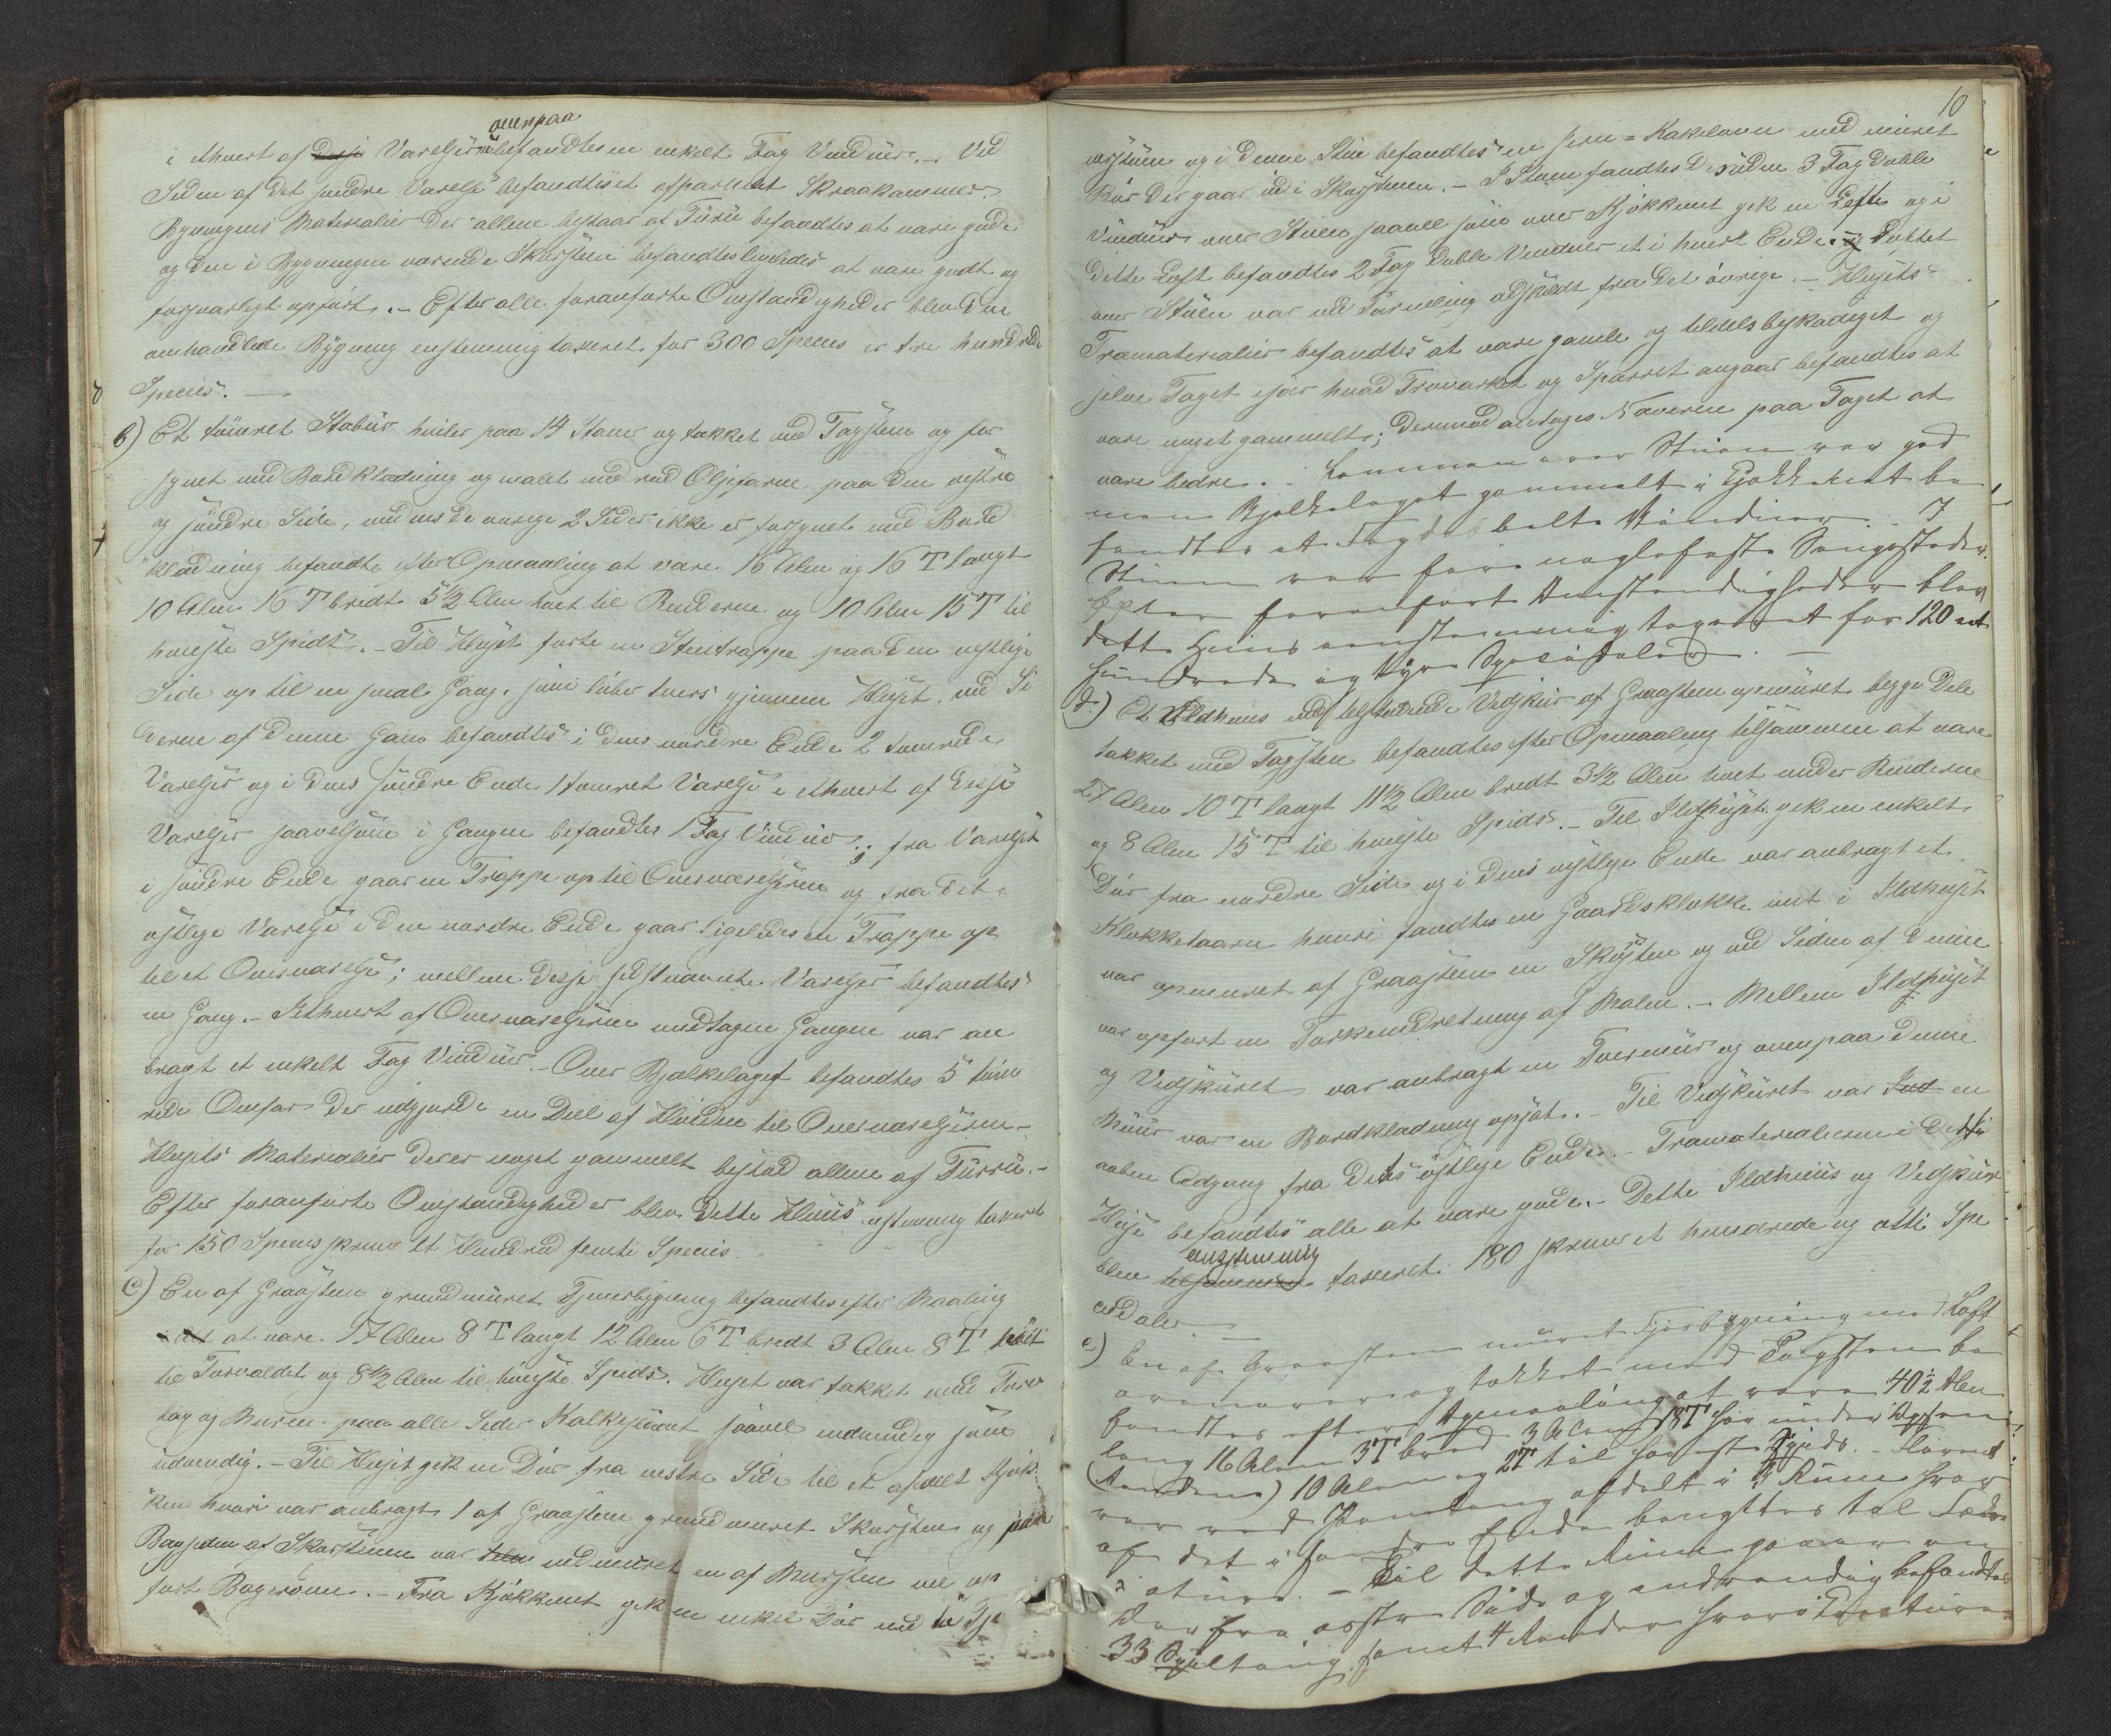 ovenpaa
i ethvert af disse Værelser befandtes en enkelt Fag Vinduer. – Ved
Siden af det søndre Værelse befandtes et afpanelet Skraakammer.
Bygningens Materialier der allene bestaar af Furu befandtes at være gode
og den i Bygningen værende Skorsteen befandtes ligeledes at være godt og
forsvarligt opført. – Efter alle foranførte Omstændigheder blev den
omhandlede Bygning enstemmig taxeret for 300 Species er tre hundrede
Species. –
b) Et tømret Stabur hviler paa 14 Staver og tækket med Tagsteen og for
synet med Bordklædning og malet med rød Oljefarve paa den vestre
og søndre Side, medens de øvrige 2 Sider ikke er forsynet med Bord
klædning befandtes efter Opmaaling at være 16 Alen og 16 T langt
10 Alen 16 T bredt 5½ Alen høit til Rendene og 10 Alen 15 T til
høieste Spids. – Til Huset førte en Steentrappe paa den vestlige
Side op til en smal Gang, som løber tvers gjennem Huset, ved Si
derne af denne Gang befandtes i dens nordre Ende 2 tømrede
Værelser og i dens søndre Ende 1 tømret Værelse i ethvert af disse
Værelser saavelsom i Gangen befandtes 1 Fag Vinduer; fra Værelset
i søndre Ende gaar en Trappe op til Overværelserne og fra det
østlige Værelse i den nordre Ende gaar ligeledes en Trappe op
til et Overværelse; mellem disse sidstnævnte Værelser befandtes
en Gang. – I ethvert af Overværelserne undtagen Gangen var an
bragt et enkelt Fag Vinduer. – Over Bjælkelaget befandtes 5 tøm
rede Omfar der udgjorde en Deel af Høiden til Overværelserne –
Husets Materialier der er noget gammelt bestod allene af Furru. –
Efter foranførte Omstændigheder blev dette Huus enstemmig taxeret
for 150 Species skriver Et Hundred femti Species.
c) En af Graasteen grundmuret Tjenerbygning befandtes efter Maaling
at at være 17 Alen 8 T langt 12 Alen 6 T bredt 3 Alen 8 T høit
til Torvoldet og 8½ Alen til høieste Spids. Huset var tækket med Torv
tag og Muren paa alle Sider Kalkpudset saavel indvendig som
udvendig. – Til Huset gik en Dør fra vestre Side til et afdelt Kjøk
ken hvori var anbragt 1 af Graasteen grundmuret Skorsteen og paa
Bagsiden af Skorstenen var indmuret en af Mursteen vel op
ført Bagerovn. – Fra Kjøkkenet gik en enkel Dør ind til Tje
10
nerstuen og i denne Stue befandtes en Jern-Kakelovn med muret
Rør der gaar ud i Skorstenen. – I Stuen fandtes desuden 3 Fag doble
Vinduer over Stuen saavel som over Kjøkkenet gik en Loft og i
dette Loft befandtes 2 Fag doble Vinduer et i hvert Ende og Loftet
over Stuen var ved Paneling adskildt fra det øvrige. – Husets
Træmaterialier befandtes at være gamle og tildels beskadiget og
selve Taget især hvad Troværket og Sparret angaar befandtes at
være meget gammelt; derimod antoges Næveren paa Taget at
være bedre. – Lemmen over Stuen var god
men Bjelkelaget gammelt i Kjøkkenet be
fandtes et Fag dobelte Vinduer. – I
Stuen var fire naglefaste Sengesteder.
Efter foranført Omstændigheder blev
dette Huus eenstemmig taxeret for 120 et
hundrede og tyve Speciedaler. –
d.) Et Ildhuus med tilhørende Vedskur af Graasteen opmuret begge Dele
tækket med Tagsteen befandtes efter Opmaaling tilsammen at være
27 Alen 10 T langt 11½ Alen bredt 3½ Alen høit under Renderne
og 8 Alen 15 T til høieste Spids. – Til Ildhuset gik en enkelt
Dør fra nordre Side og i dens vestlige Ende var anbragt et
Klokketaarn hvori fandtes en Gaardsklokke inde i Ildhuset
var opmuret af Graasteen en Skorsteen og ved Siden af denne
var opført en Tørkeindretning af Malm. – Mellem Ildhuset
og Vedskuret var anbragt en Tvermuur og ovenpaa denne
Muur var en Bordklædning opsat. – Til Vedskuret var Ind en
aaben Adgang fra dets østlige Ende. – Træmaterialierne i dette
Huse befandtes alle at være gode. – Dette Ildhuus og Vedskur
enstemmig
blev tilsammen taxeret 180 skriver et hundrede og otti Spe
ciedaler –
e) En af Graasteen muret Fjøsbygning med Loft
ovenover og tækket med Tagsteen be
fandtes efter Opmaaling at være 40½ Alen
lang 16 Alen 3T bred 3 Alen 18T høi under
(Rendene) 10 Alen og 2T til høieste Spids. – Fløren
var ved afdelt i 3 Rum hvor
af det i søndre Ende benyttes til
. – Til dette Rum gaaer en
Dør fra østre Side og indvendig befandtes
33 samt 4 hvori